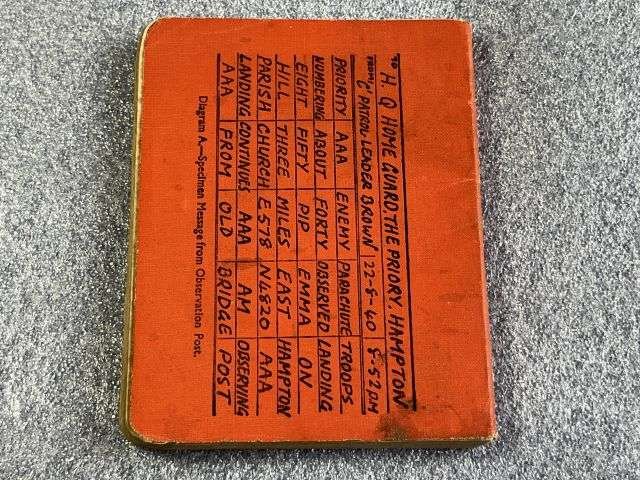 TO H. Q HOME GUARD. THE PRIORY. HAMPTON
FROM: "C" PATROL LEADER BROWN 22-8-40 8-52 PM
PRIORITY AAA ENEMY PARACHUTE TROOPS
NUMBERING ABOUT FORTY OBSERVED LANDING
EIGHT FIFTY PIP EMMA ON
HILL THREE MILES EAST HAMPTON
PARISH CHURCH E578 N4820 AAA
LANDING CONTINUES AAA AM OBSERVING
AAA FROM OLD BRIDGE POST
Diagram A.—Specimen Message from Observation Post.